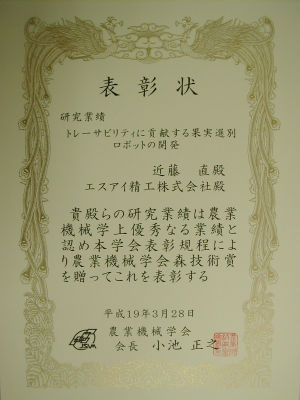 表彰状
研究業績
トレーサビリティに貢献する果実選別
ロボットの開発
近藤 直殿
エスアイ精工株式会社殿
貴殿らの研究業績は農業
機械学上優秀なる業績と
認め本学会表彰規程によ
り農業機械学会森技術賞
を贈ってこれを表彰する
平成19年3月28日
農業機械学会
会長 小池 正之